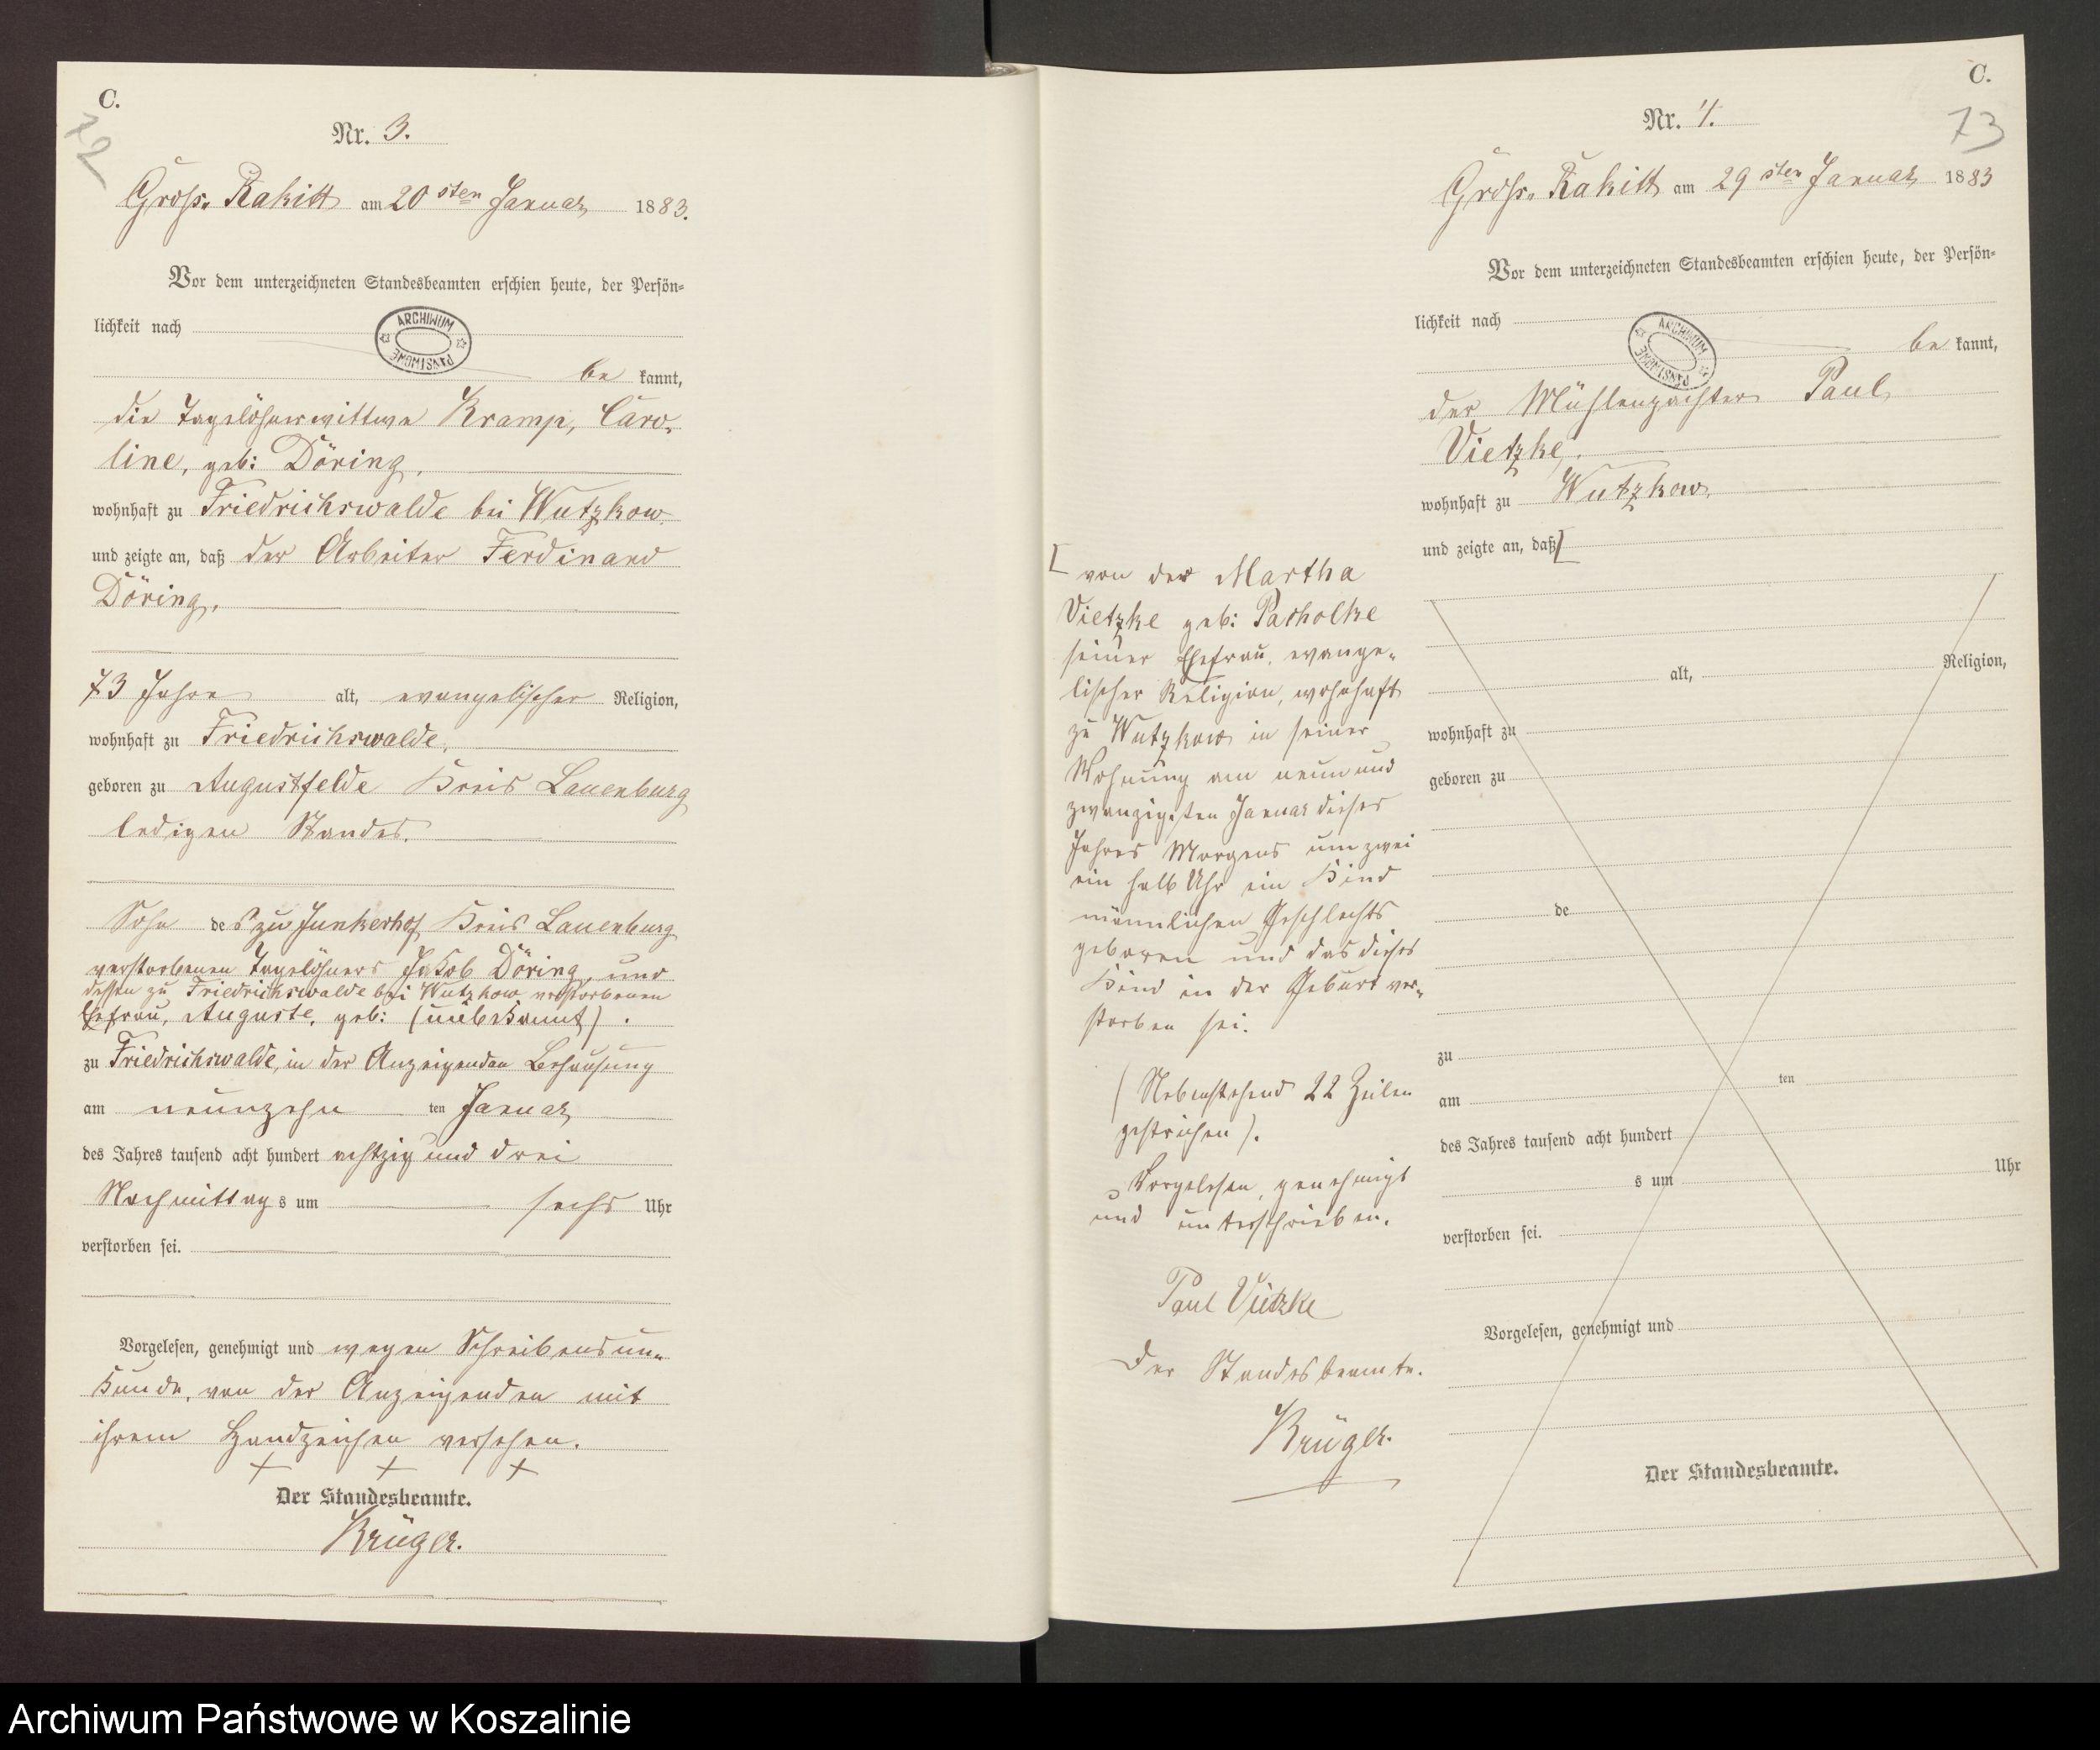 C.
72
Nr. 3.
Gross-Rakitt am 20sten Januar 1883.
Vor dem unterzeichneten Standesbeamten erschien heute, der Persön-
lichkeit nach
ARCHIWUM PAŃSTWOWE
be kannt,
die Tagelöhnerwittwe Kramp, Caro-
line, geb: Döring,
wohnhaft zu Friedrichswalde bei Wutzkow
und zeigte an, daß der Arbeiter Ferdinand
Döring,
73 Jahre alt, evangelischer Religion,
wohnhaft zu Friedrichswalde,
geboren zu Augustfelde Kreis Lauenburg
ledigen Standes.
Sohn des zu Junkerhof Kreis Lauenburg
verstorbenen Tagelöhners Jakob Döring, und
dessen zu Friedrichswalde bei Wutzkow verstorbenen
Ehefrau, Auguste, geb: (unbekannt).
zu Friedrichswalde, in der Anzeigenden Behausung
am neunzehn ten Januar
des Jahres tausend acht hundert achtzig und drei
Nachmittag s um sechs Uhr
verstorben sei.
Vorgelesen, genehmigt und wegen Schreibensun-
kunde, von der Anzeigenden mit
ihrem Handzeichen versehen.
+ + +
Der Standesbeamte.
Krüger.
C.
73
Nr. 4.
Gross-Rakitt am 29sten Januar 1883
Vor dem unterzeichneten Standesbeamten erschien heute, der Persön-
lichkeit nach
ARCHIWUM PAŃSTWOWE
be kannt,
der Mühlenpächter Paul
Vietzke,
wohnhaft zu Wutzkow,
und zeigte an, daß [
[ von der Martha
Vietzke geb: Pacholke
seiner Ehefrau, evange-
lischer Religion, wohnhaft
zu Wutzkow in seiner
Wohnung am neunund
zwanzigsten Januar dieses
Jahres Morgens um zwei
ein halb Uhr ein Kind
männlichen Geschlechts
geboren und das dieses
Kind in der Geburt ver-
storben sei.
(Nebenstehend 22 Zeilen
gestrichen).
Vorgelesen, genehmigt
und unterschrieben.
Paul Vietzke
Der Standesbeamte.
Krüger.
alt, Religion,
wohnhaft zu
geboren zu
de
zu
am ten
des Jahres tausend acht hundert
s um Uhr
verstorben sei.
Vorgelesen, genehmigt und
Der Standesbeamte.
Archiwum Państwowe w Koszalinie